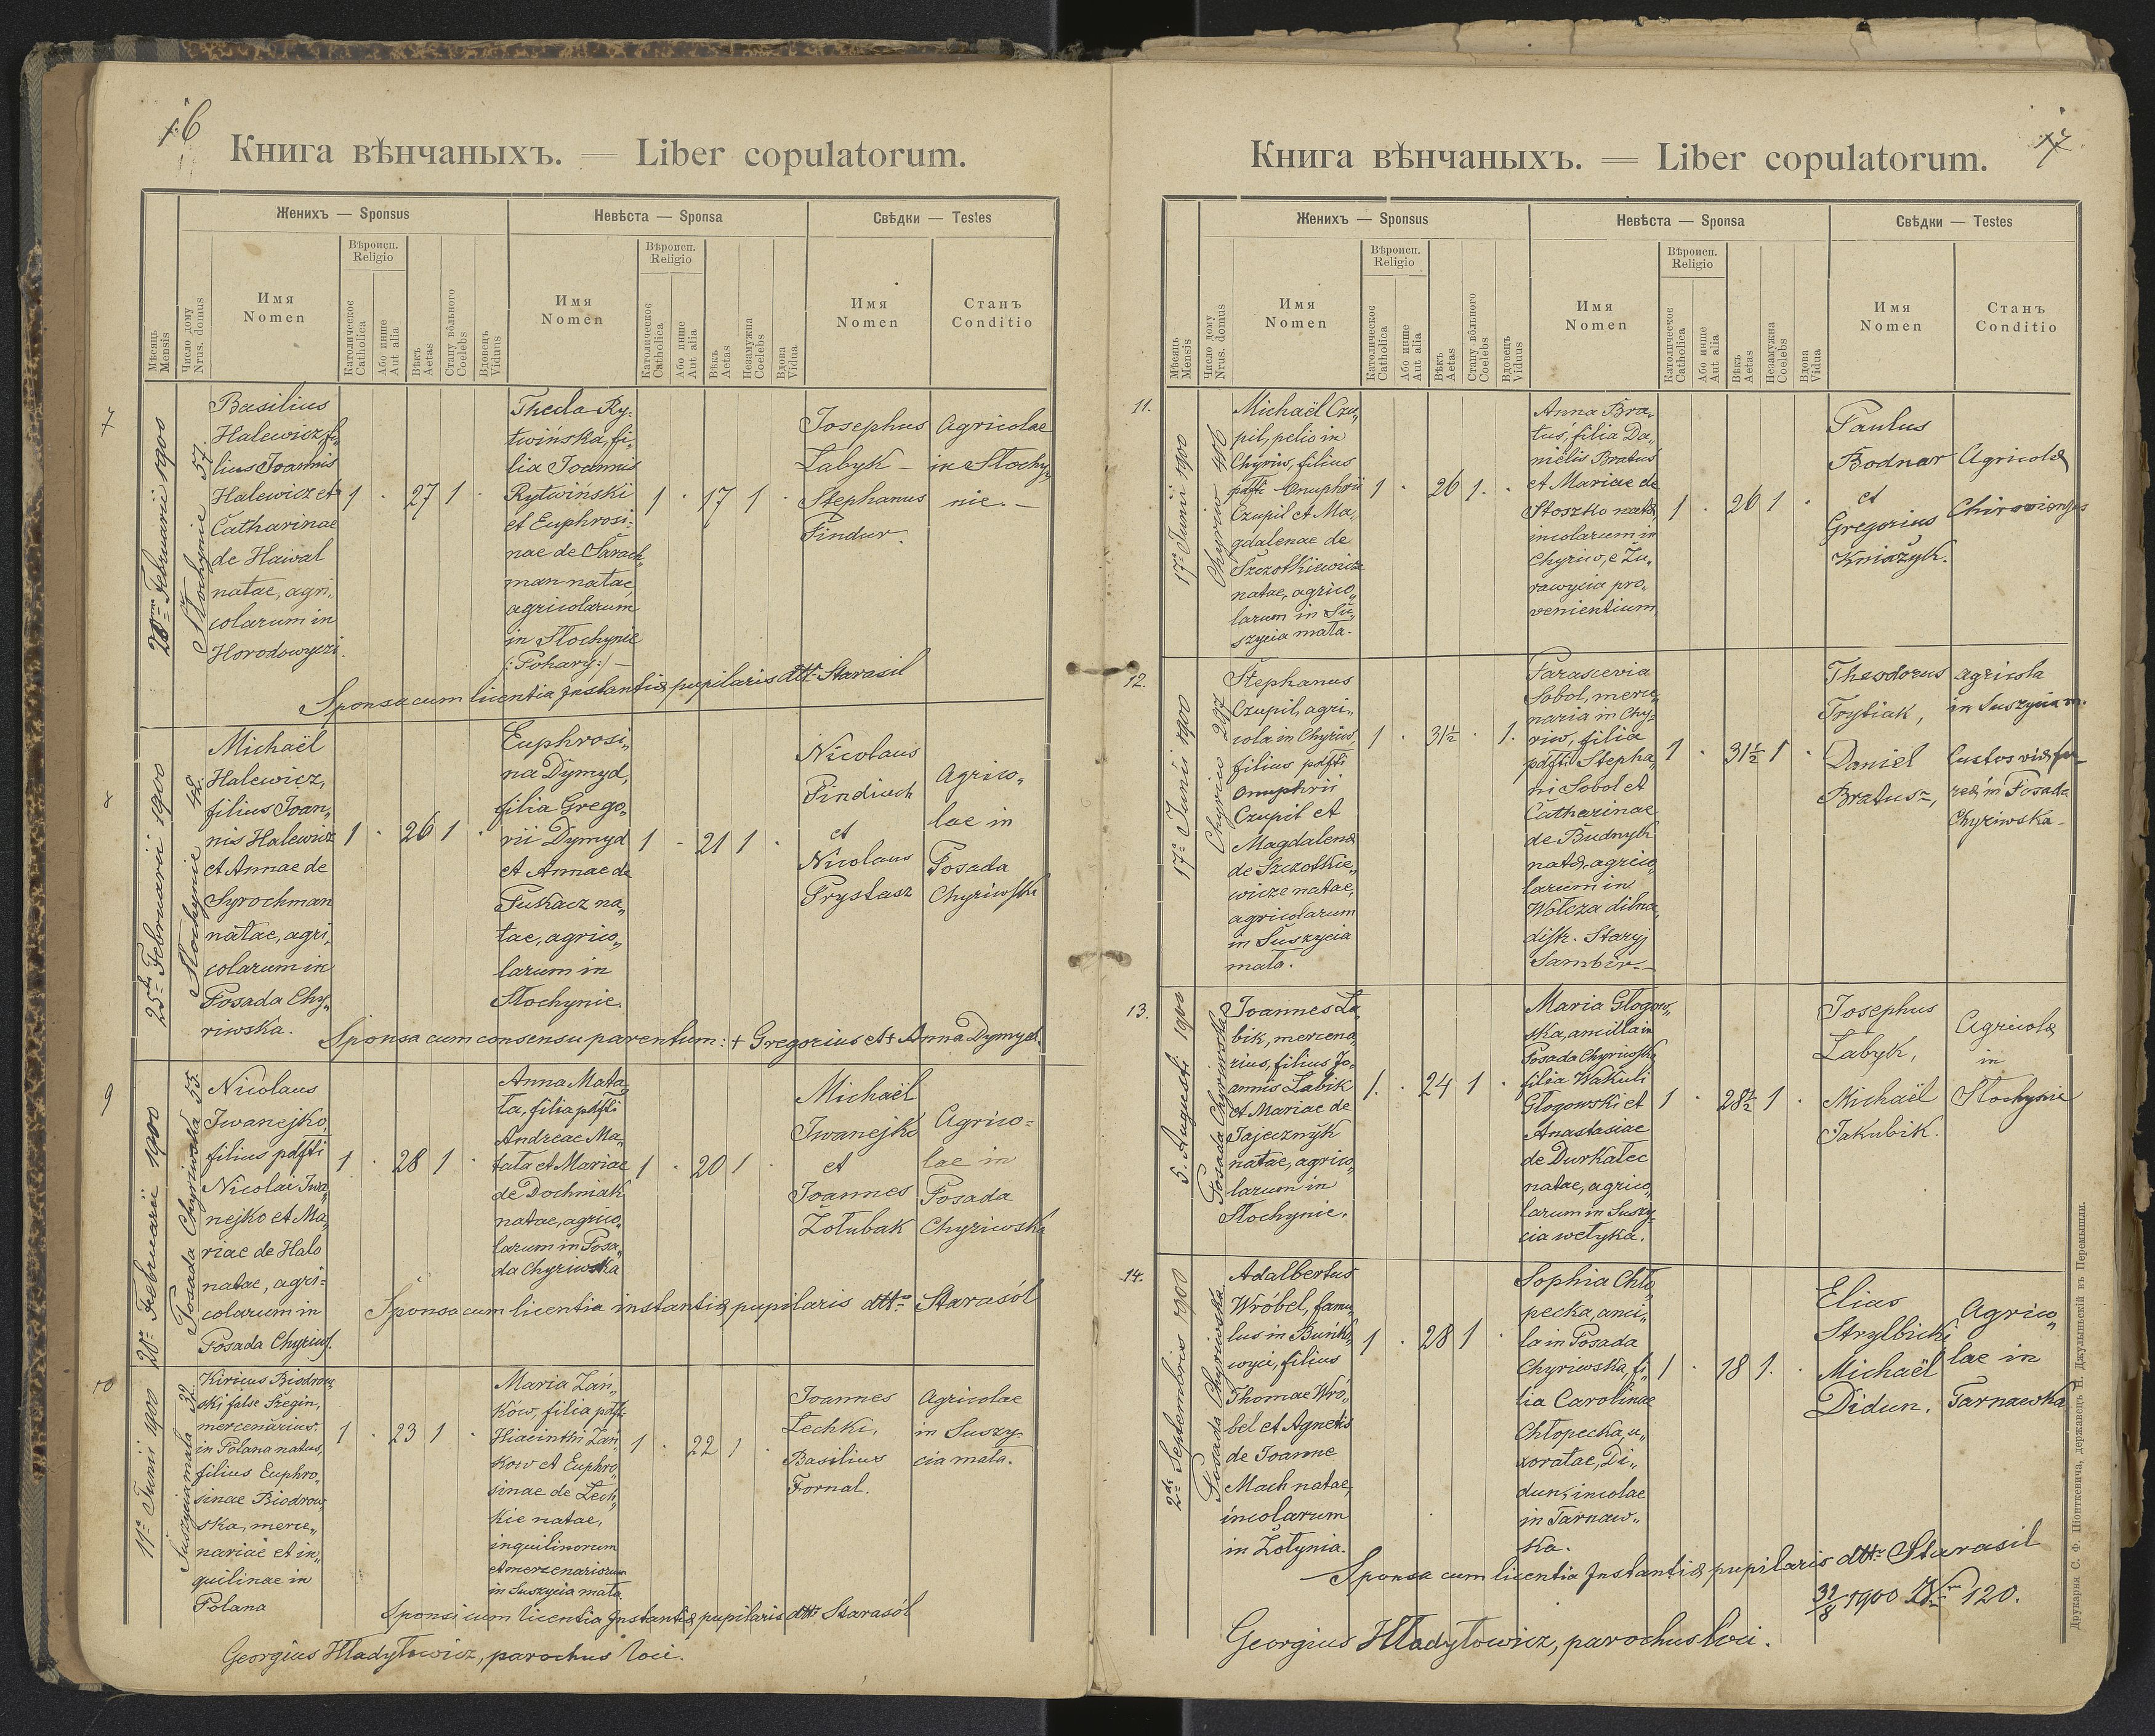 16
Книга вѣнчаныхъ. — Liber copulatorum.
Женихъ — Sponsus
Невѣста — Sponsa
Свѣдки — Testes
Мѣсяць Mensis
Число дому Nrus. domus
Имя
Nomen
Вѣроисп.
Religio
Католическое Catholica
Або инше Aut alia
Вѣкъ Aetas
Стану вôльного Coelebs
Вдовецъ Viduus
Имя
Nomen
Вѣроисп.
Religio
Католическое Catholica
Або инше Aut alia
Вѣкъ Aetas
Незамужна Coelebs
Вдова Vidua
Имя
Nomen
Станъ
Conditio
7
Februarii 1900
Słochynie 57.
Basilius
Halewicz, fi„
lius Joannis
Halewicz et
Catharinae
de Hawal
natae, agri„
colarum in
Horodowyczi.
1 . 27 1 .
Thecla Ry„
twińska, fi„
lia Joannis
Rytwiński
et Euphrosi„
nae de Sarach„
man natae,
agricolarum
in Słochynie
(:Pohary:) —
1 . 17 1 .
Josephus
Łabyk —
Stephanus
Pindur.
Agricolae
in Słochy„
nie. —
Sponsa cum licentia Instantiæ pupilaris dtto Starasil
8
25ta Februarii 1900
Słochynie 48.
Michaël
Halewicz,
filius Joan„
nis Halewicz
et Annae de
Syrochman
natae, agri„
colarum in
Posada Chy„
riwska.
1 . 26 1 .
Euphrosi„
na Dymyd,
filia Grego„
rii Dymyd
et Annae de
Pukacz na„
tae, agrico„
larum in
Słochynie.
1 . 21 1 .
Nicolaus
Pindiuch
et
Nicolaus
Prystasz
Agrico„
lae in
Posada
Chyriwska
Sponsa cum consensu parentum: + Gregorius et + Anna Dymyd.
9
Februarii 1900
Posada Chyriwska 55.
Nicolaus
Iwanejko,
filius pdfti
Nicolai Iwa„
nejko et Ma„
riae de Halo
natae, agri„
colarum in
Posada Chyriws.
1 . 28 1 .
Anna Mata„
ła, filia pdfti
Andreae Ma„
tała et Mariae
de Dochniak
natae, agrico„
larum in Posa„
da Chyriwska
1 . 20 1 .
Michaël
Iwanejko
et
Joannes
Żołubak
Agrico„
lae in
Posada
Chyriwska
Sponsa cum licentia instantiæ pupilaris dtto Starasól
10
11a Junii 1900
Suszycia mała 32.
Kiricus Biodrow„
ski false Szegin,
mercenarius,
in Polana natus,
filius Euphro„
sinae Biodrow„
ska, merce„
nariae et in„
quilinae in
Polana
1 . 23 1 .
Maria Zań„
ków, filia pdfti
Hiacinthi Zań„
kow et Euphro„
sinae de Lech„
kie natae,
inquilinorum
et mercenariorum
in Suszycia mała.
1 . 22 1 .
Joannes
Lechki,
Basilius
Fornal.
Agricolae
in Suszy„
cia mała.
Sponsi cum licentia Instantiæ pupilaris dtto Starasól
Georgius Hładyłowicz, parochus loci.
17
Книга вѣнчаныхъ. — Liber copulatorum.
Женихъ — Sponsus
Невѣста — Sponsa
Свѣдки — Testes
Мѣсяць Mensis
Число дому Nrus. domus
Имя
Nomen
Вѣроисп.
Religio
Католическое Catholica
Або инше Aut alia
Вѣкъ Aetas
Стану вôльного Coelebs
Вдовецъ Viduus
Имя
Nomen
Вѣроисп.
Religio
Католическое Catholica
Або инше Aut alia
Вѣкъ Aetas
Незамужна Coelebs
Вдова Vidua
Имя
Nomen
Станъ
Conditio
11.
17a Junii 1900
Chyriw 416
Michaël Czu„
pil, pelio in
Chyriw, filius
pdfti Onuphrii
Czupil et Ma„
gdalenae de
Szczotkiewicze
natae, agrico„
larum in Su„
szycia mała.
1 . 26 1 .
Anna Bra„
tuś, filia Da„
niëlis Bratuś
et Mariae de
Stoszko natæ,
incolarum in
Chyriw, e Żu„
rawycia pro„
venientium.
1 . 26 1 .
Paulus
Bodnar
et
Gregorius
Kniażyk.
Agricolæ
Chirovienses
12.
17a Junii 1900
Chyriw 287
Stephanus
Czupil, agri„
cola in Chyriw,
filius pdfti
Onuphrii
Czupil et
Magdalenæ
de Szczotkie„
wicze natae,
agricolarum
in Suszycia
mała.
1 . 31½ . 1.
Parascevia
Sobol, merce„
naria in Chy„
riw, filia
pdfti Stepha„
ni Sobol et
Catharinae
de Budnyk
natæ, agrico„
larum in
Wołcza dilna,
distr. Staryj
Sambir. —
1 . 31½ 1 .
Theodorus
Trytiak,
Daniel
Bratuś,
agricola
in Suszycia m.
Custos viæ fer„
reæ, in Posada
Chyriwska —
13.
5. Augusti 1900
Posada Chyriwska
Joannes Ła„
bik, mercena„
rius, filius Jo„
annis Łabik
et Mariae de
Jajecznyk
natae, agrico„
larum in
Słochynie.
1. . 24 1 .
Maria Głogow„
ska, ancilla in
Posada Chyriwska,
filia Wakuli
Głogowski et
Anastasiae
de Durkalec
natae, agrico„
larum in Suszy„
cia wełyka.
1 . 28½ 1 .
Josephus
Łabyk,
Michaël
Jakubik.
Agricolæ
in
Słochynie
14.
2da Septembris 1900
Posada Chyriwska
Adalbertus
Wróbel, famu„
lus in Buńko„
wyci, filius
Thomae Wró„
bel et Agnetis
de Joanne
Mach natae,
incolarum
in Żołynia.
1 . 28 1 .
Sophia Chło„
pecka, anci„
la in Posada
Chyriwska, fi„
lia Carolinae
Chłopecka, u„
xoratae, Di„
dun, incolae
in Tarnaw„
ka.
1 . 18 1 .
Elias
Strylbicki
Michaël
Didun.
Agrico„
lae in
Tarnawka
Sponsa cum licentia Instantiæ pupilaris dtto Starasil
31/8 1900 Nm 120.
Georgius Hładyłowicz, parochus loci.
Друкарня С. Ф. Піонткевича, державець Н. Джулыньскій въ Перемышли.